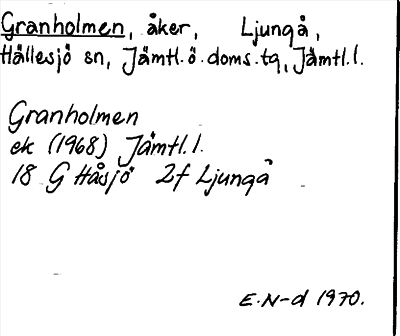 Granholmen, åker, Ljungå,
Hällesjö sn, Jämtl.ö.doms.tg, Jämtl.l.
Granholmen
ek (1968) Jämtl.l.
18 G Håsjö 2f Ljungå
E.N-d 1970.